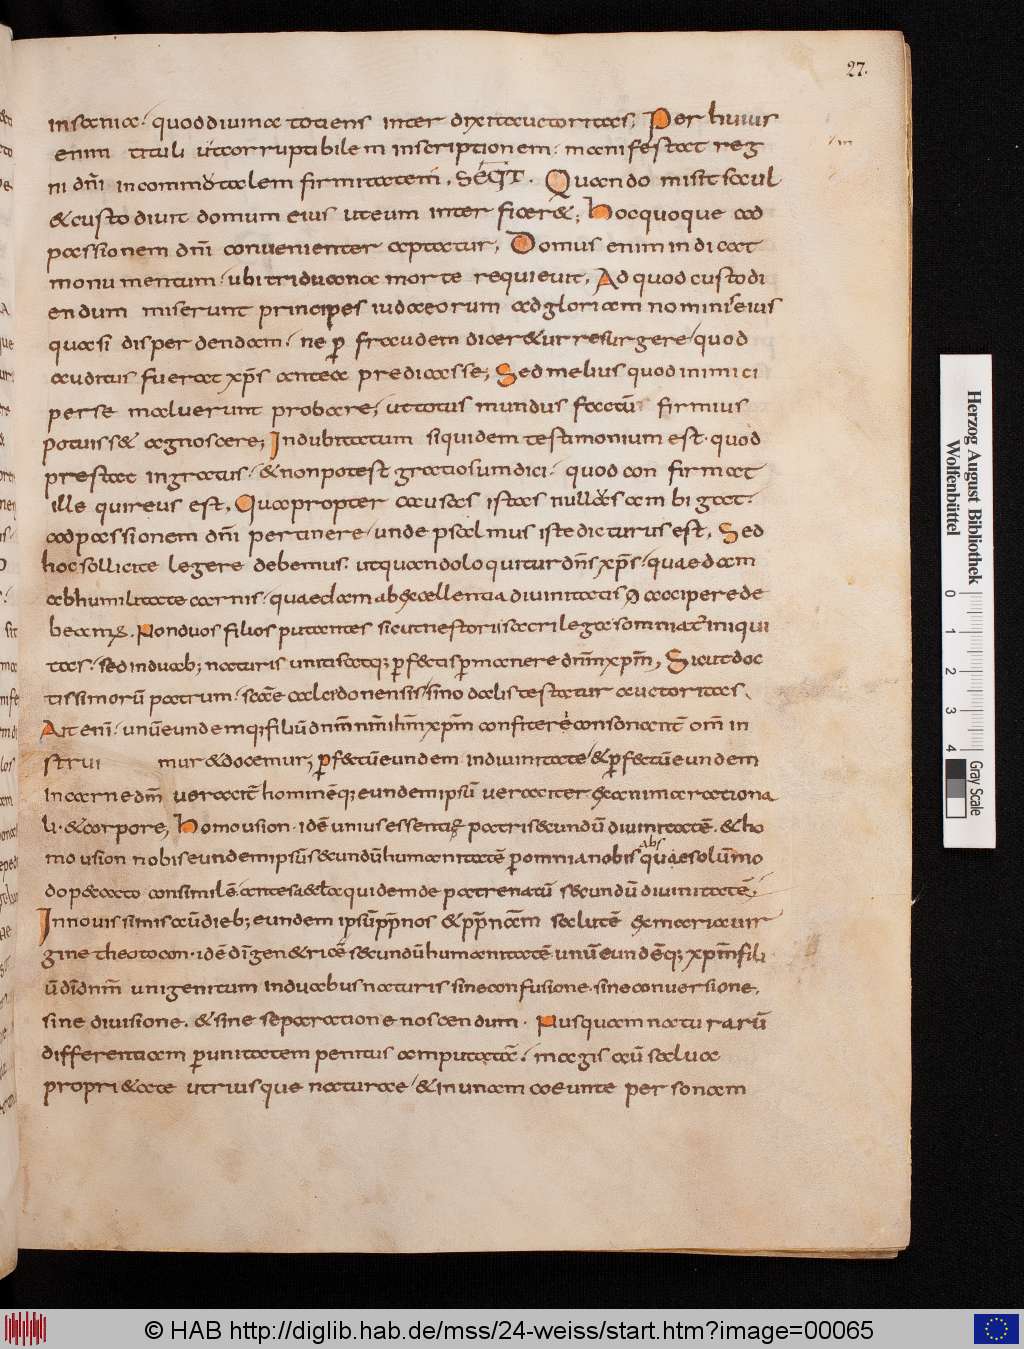 27.
insaniae. quod diuina totiens inter dixit auctoritas; Per huius
enim tituli incorruptibilem inscriptionem. manifestat reg
ni dñi incommutabilem firmitatem. SEQT. Quando misit saul
& custodiuit domum eius ut eum interficer&; Hoc quoque ad
passionem dñi conuenienter aptatur. Domus enim indicat
monumentum. ubi triduana morte requieuit. Ad quod custodi
endum miserunt principes iudaeorum ad gloriam nominis eius
quasi disperdendam. ne p fraudem dicer&ur resurgere quod
auditus fuerat xp̄s antea predicasse; Sed melius quod inimici
per se maluerunt probare, ut totus mundus factū firmius
potuiss& agnoscere; Indubitatum siquidem testimonium est. quod
prestat ingratus. & non potest gratiosum dici. quod confirmat
ille qui reus est. Quapropter causas istas nullus ambigat.
ad passionem dñi pertinere unde psalmus iste dicturus est. Sed
hoc sollicite legere debemus. ut quando loquitur dn̄s xp̄s. quaedam
ab humilitate carnis. quaedam ab excellentia diuinitatis accipere de
beamus. Non duos filios putantes sicut nestorii sacrilega somniat iniqui
tas. sed in duab; naturis unitis atq; pf&tis pmanere dnm̄ xpm̄. Sicut doc
tissimorū patrum. scāe calcidonensis sinodalis testatur auctoritas.
Ait enī. unū eundemq; filiū dnm̄ nrm̄ ihm̄ xpm̄ confitere consonant om̄ in
strui mur & docemur; pf&tū eundem in diuinitate & pf&tū eundem
in carne dm̄ ueracit̄ hominēq; eundem ipsū ueraciter ex anima rationa
li. & corpore, Homousion. idē unius essentię patri secundū diuinitatē. & ho
mousion nobis eundem ipsū secundū humanitatē p omnia nobis quae solum̄mo
abs
do peccato consimilē. antesaecla quidem de patre natū secundū diuinitatē.
In nouissimis aū dieb; eundem ipsū pp̄nos & pp̄nr̄am salutē ex maria uir
gine theotocon. idē dīgenetricē secundū humanitatē unū eundēq; xpm̄ fili
ū dīdnm̄ unigenitum in duabus naturis sine confusione. sine conuersione.
sine diuisione. & sine separatione noscendum. Nusquam naturarū
differentiam p unitatem penitus amputatā. magis aū salua
propri&ate utriusque naturae & in unam coeunte personam
Herzog August Bibliothek
Wolfenbüttel
0 1 2 3 4
Gray Scale
© HAB http://diglib.hab.de/mss/24-weiss/start.htm?image=00065